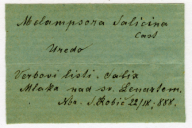 Melampsora Salicina
Cast
Uredo
Verbovi listi, Salix
Mlaka nad sv. Lenartom
Nbr. S. Robič 22/IX, 888.